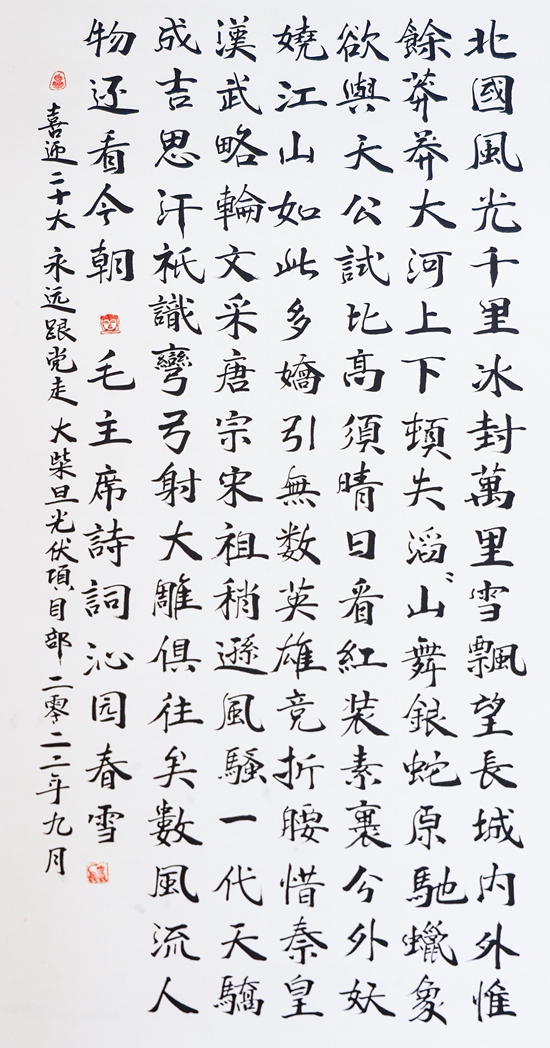 北國風光千里冰封萬里雪飄望長城内外惟
餘莽莽大河上下頓失滔〻山舞銀蛇原馳蠟象
欲與天公試比高須晴日看紅装素裹分外妖
嬈江山如此多嬌引無数英雄竞折腰惜秦皇
漢武略輪文采唐宗宋祖稍遜風騷一代天驕
成吉思汗祇識彎弓射大雕俱往矣數風流人
物还看今朝 毛主席詩詞沁园春雪
喜迎二十大 永远跟党走 大柴旦光伏項目部 二零二二年九月